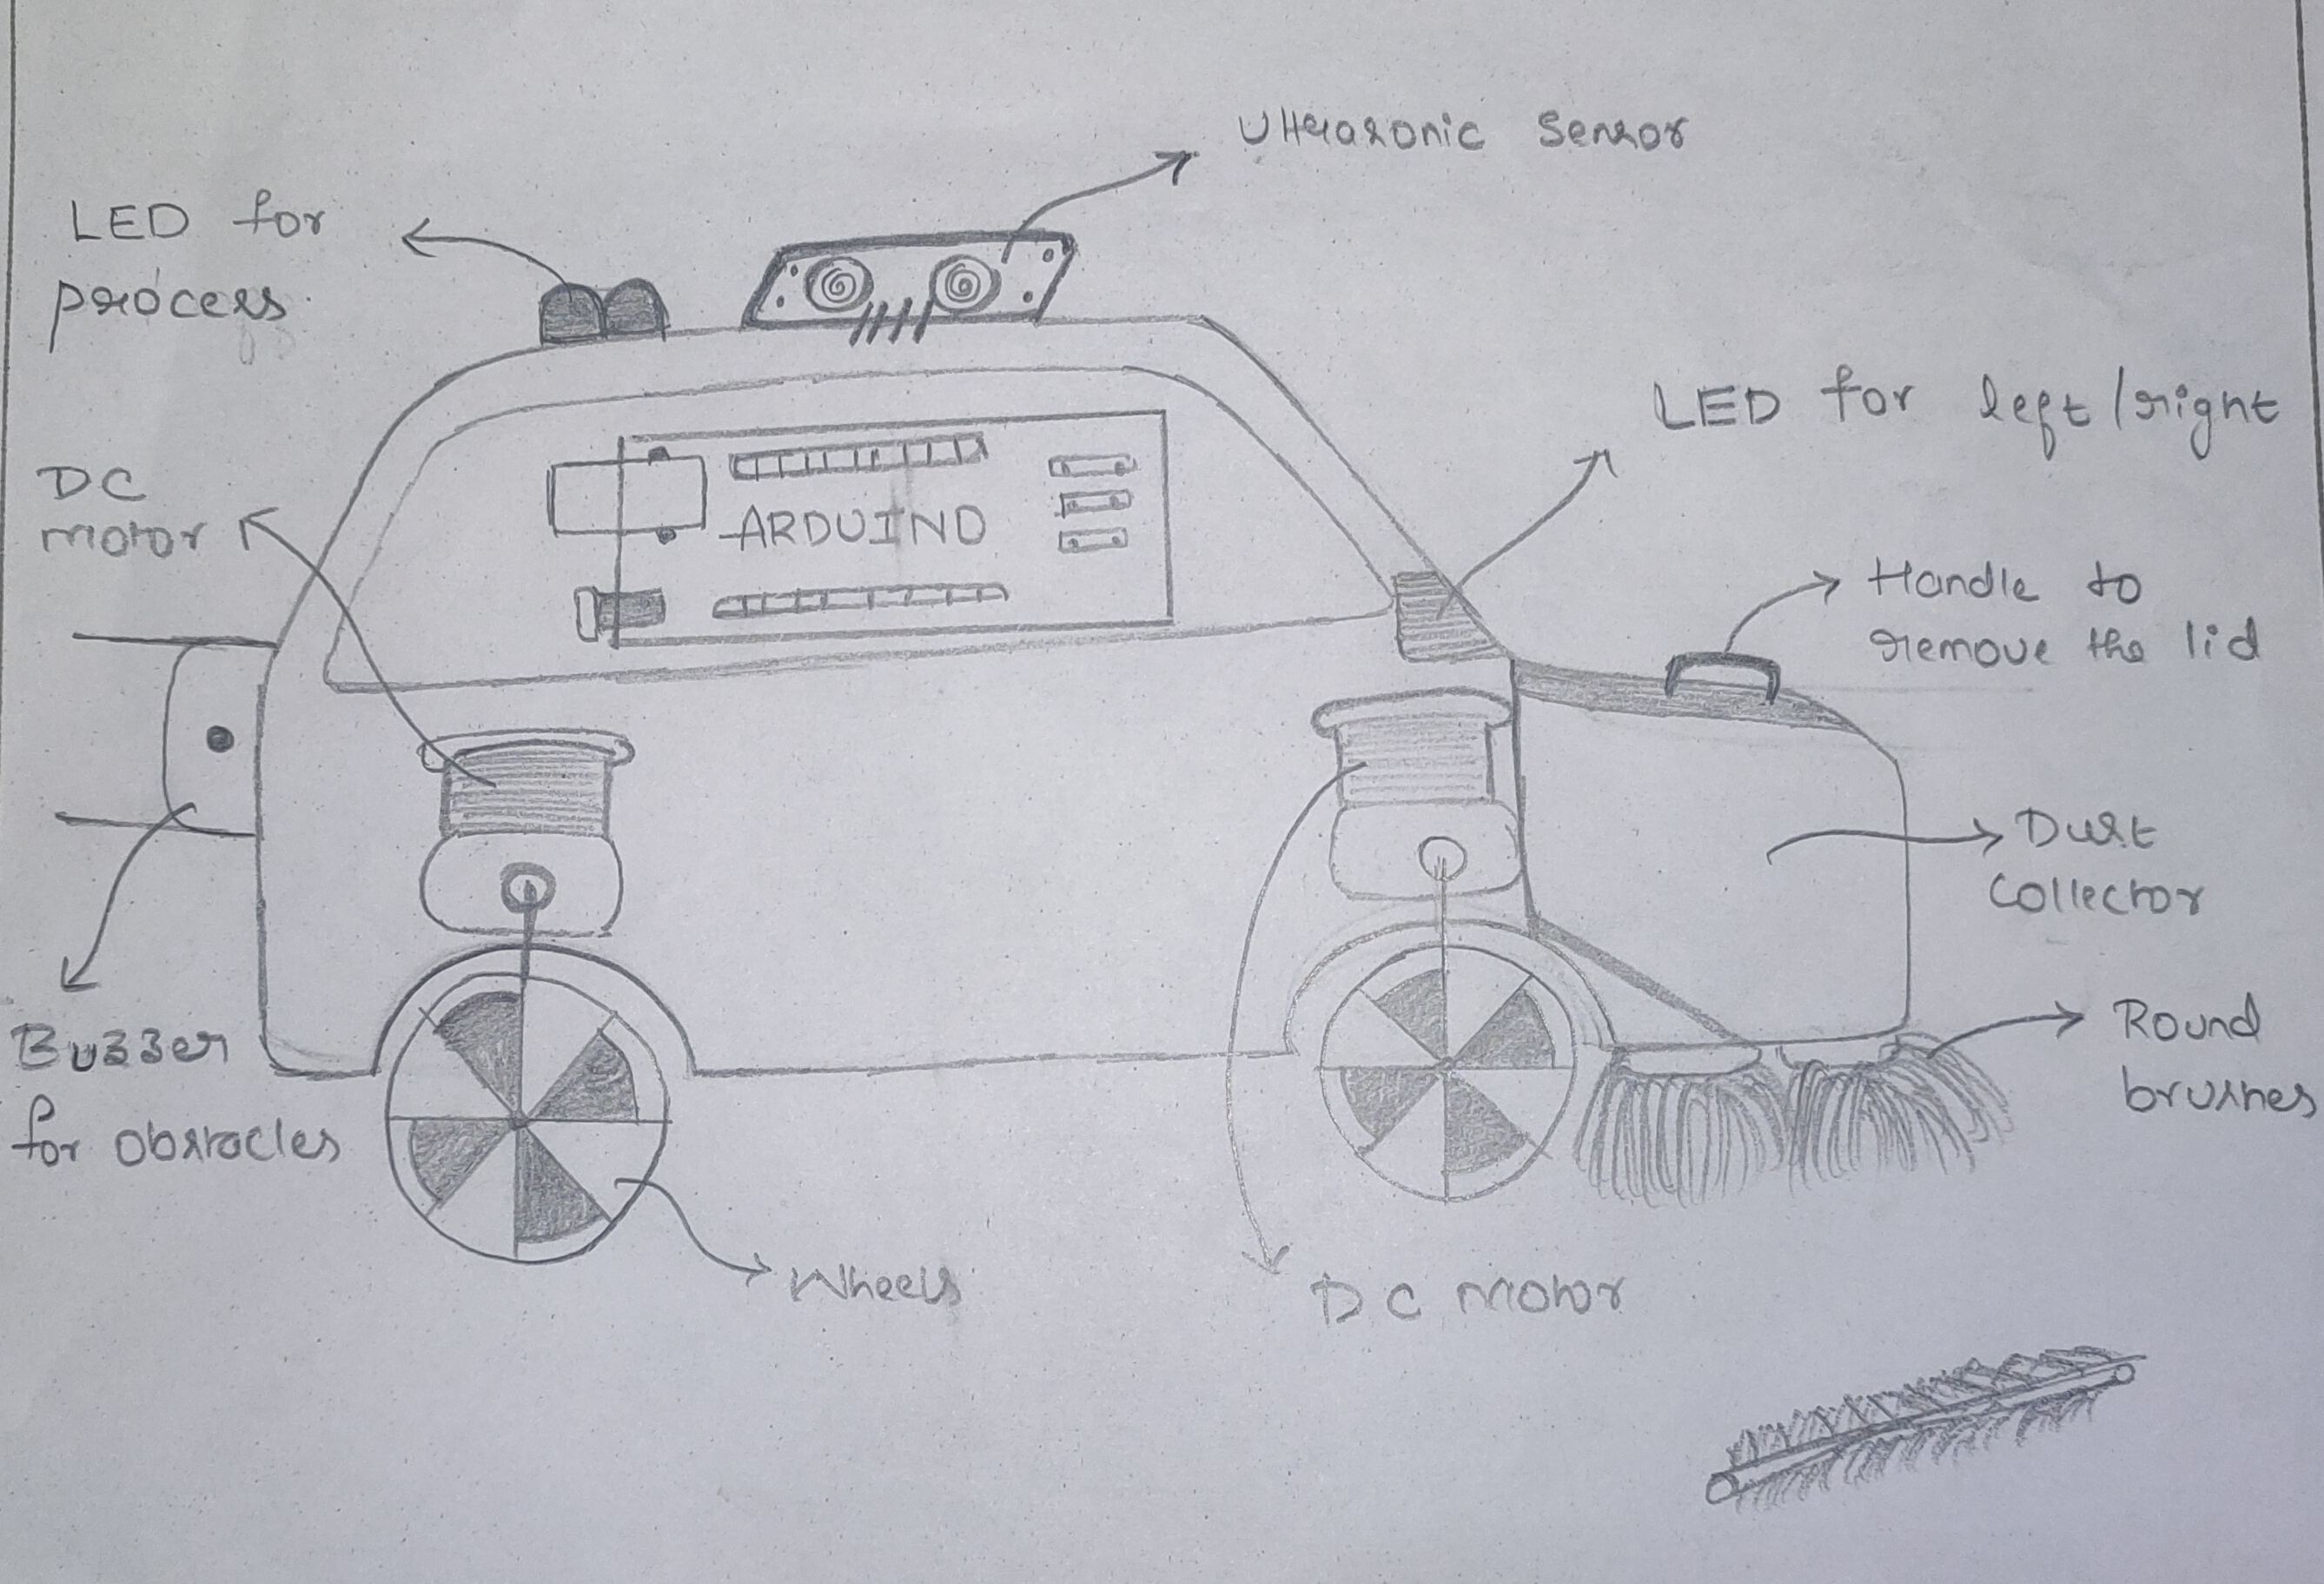 Ultrasonic Sensor
LED for
process
LED for left/right
DC
motor
ARDUINO
Handle to
remove the lid
Dust
Collector
Round
brushes
Buzzer
for obstacles
Wheels
DC motor